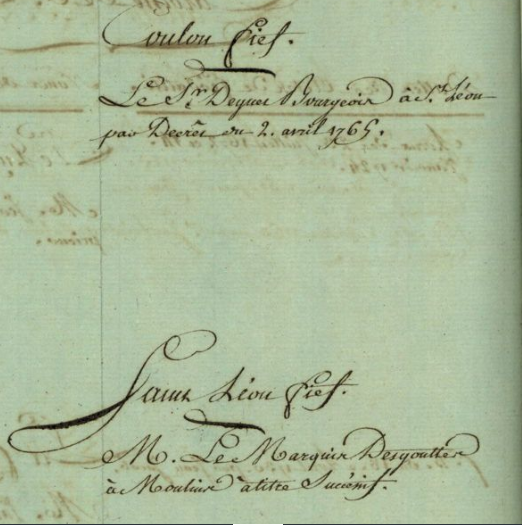 Coulon fief.
Le Sr. Deguet Bourgeois à St. Léon
par Decrêt du 2. avril 1765.
Saint Léon fief.
M. Le Marquis Desgouttes
à Moulins à titre Sucéssif.